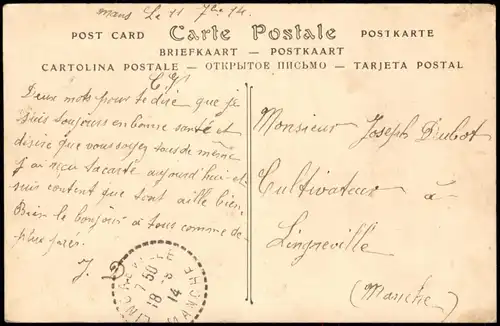 mans Le 11 7bre 14.
Carte Postale
POST CARD POSTKARTE
BRIEFKAART — POSTKAART
CARTOLINA POSTALE — ОТКРЫТОЕ ПИСЬМО — TARJETA POSTAL
Deux mots pour te dire que je
suis toujours en bonne santé et
désire que vous soyez tous de même
J'ai reçu ta carte aujourd'hui et
suis content que tout aille bien
Bien le bonjour à tous comme de
plus près.
J.
Monsieur Joseph Dubot
Cultivateur à
Lingreville
(Manche)
7 50
18 - 8
14
MANCHE